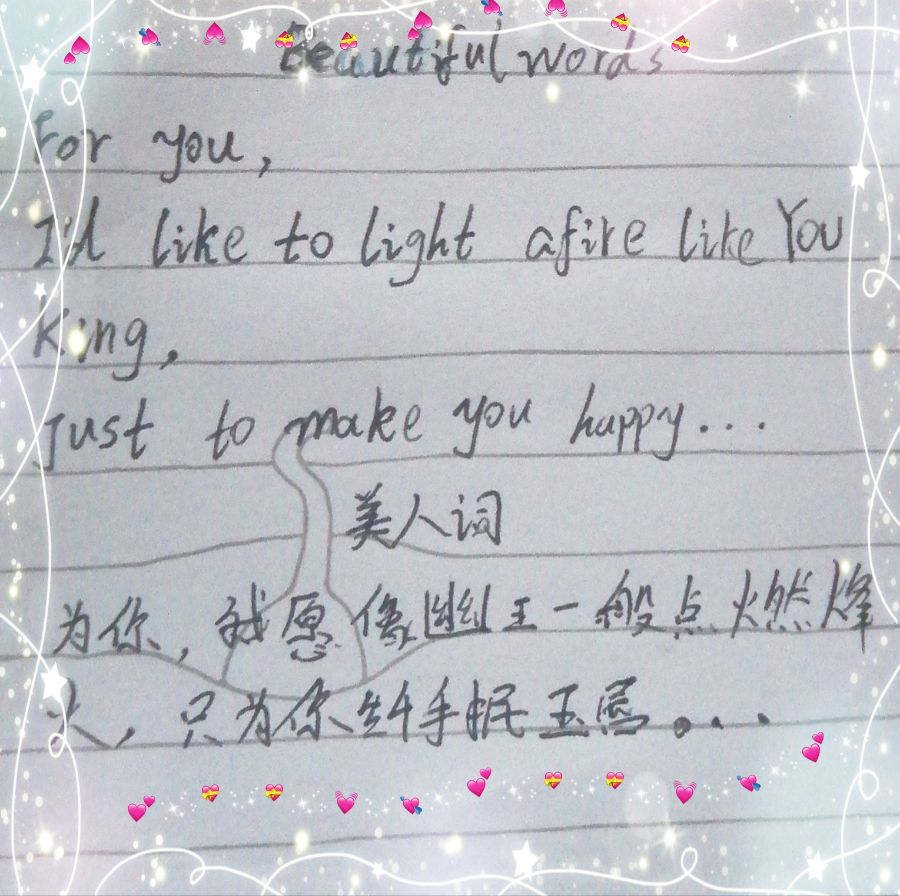 Beautiful words
For you,
I'd like to light afire like You
King,
Just to make you happy...
美人词
为你，我愿像幽王一般点燃烽
火，只为你纤手抿玉唇。...